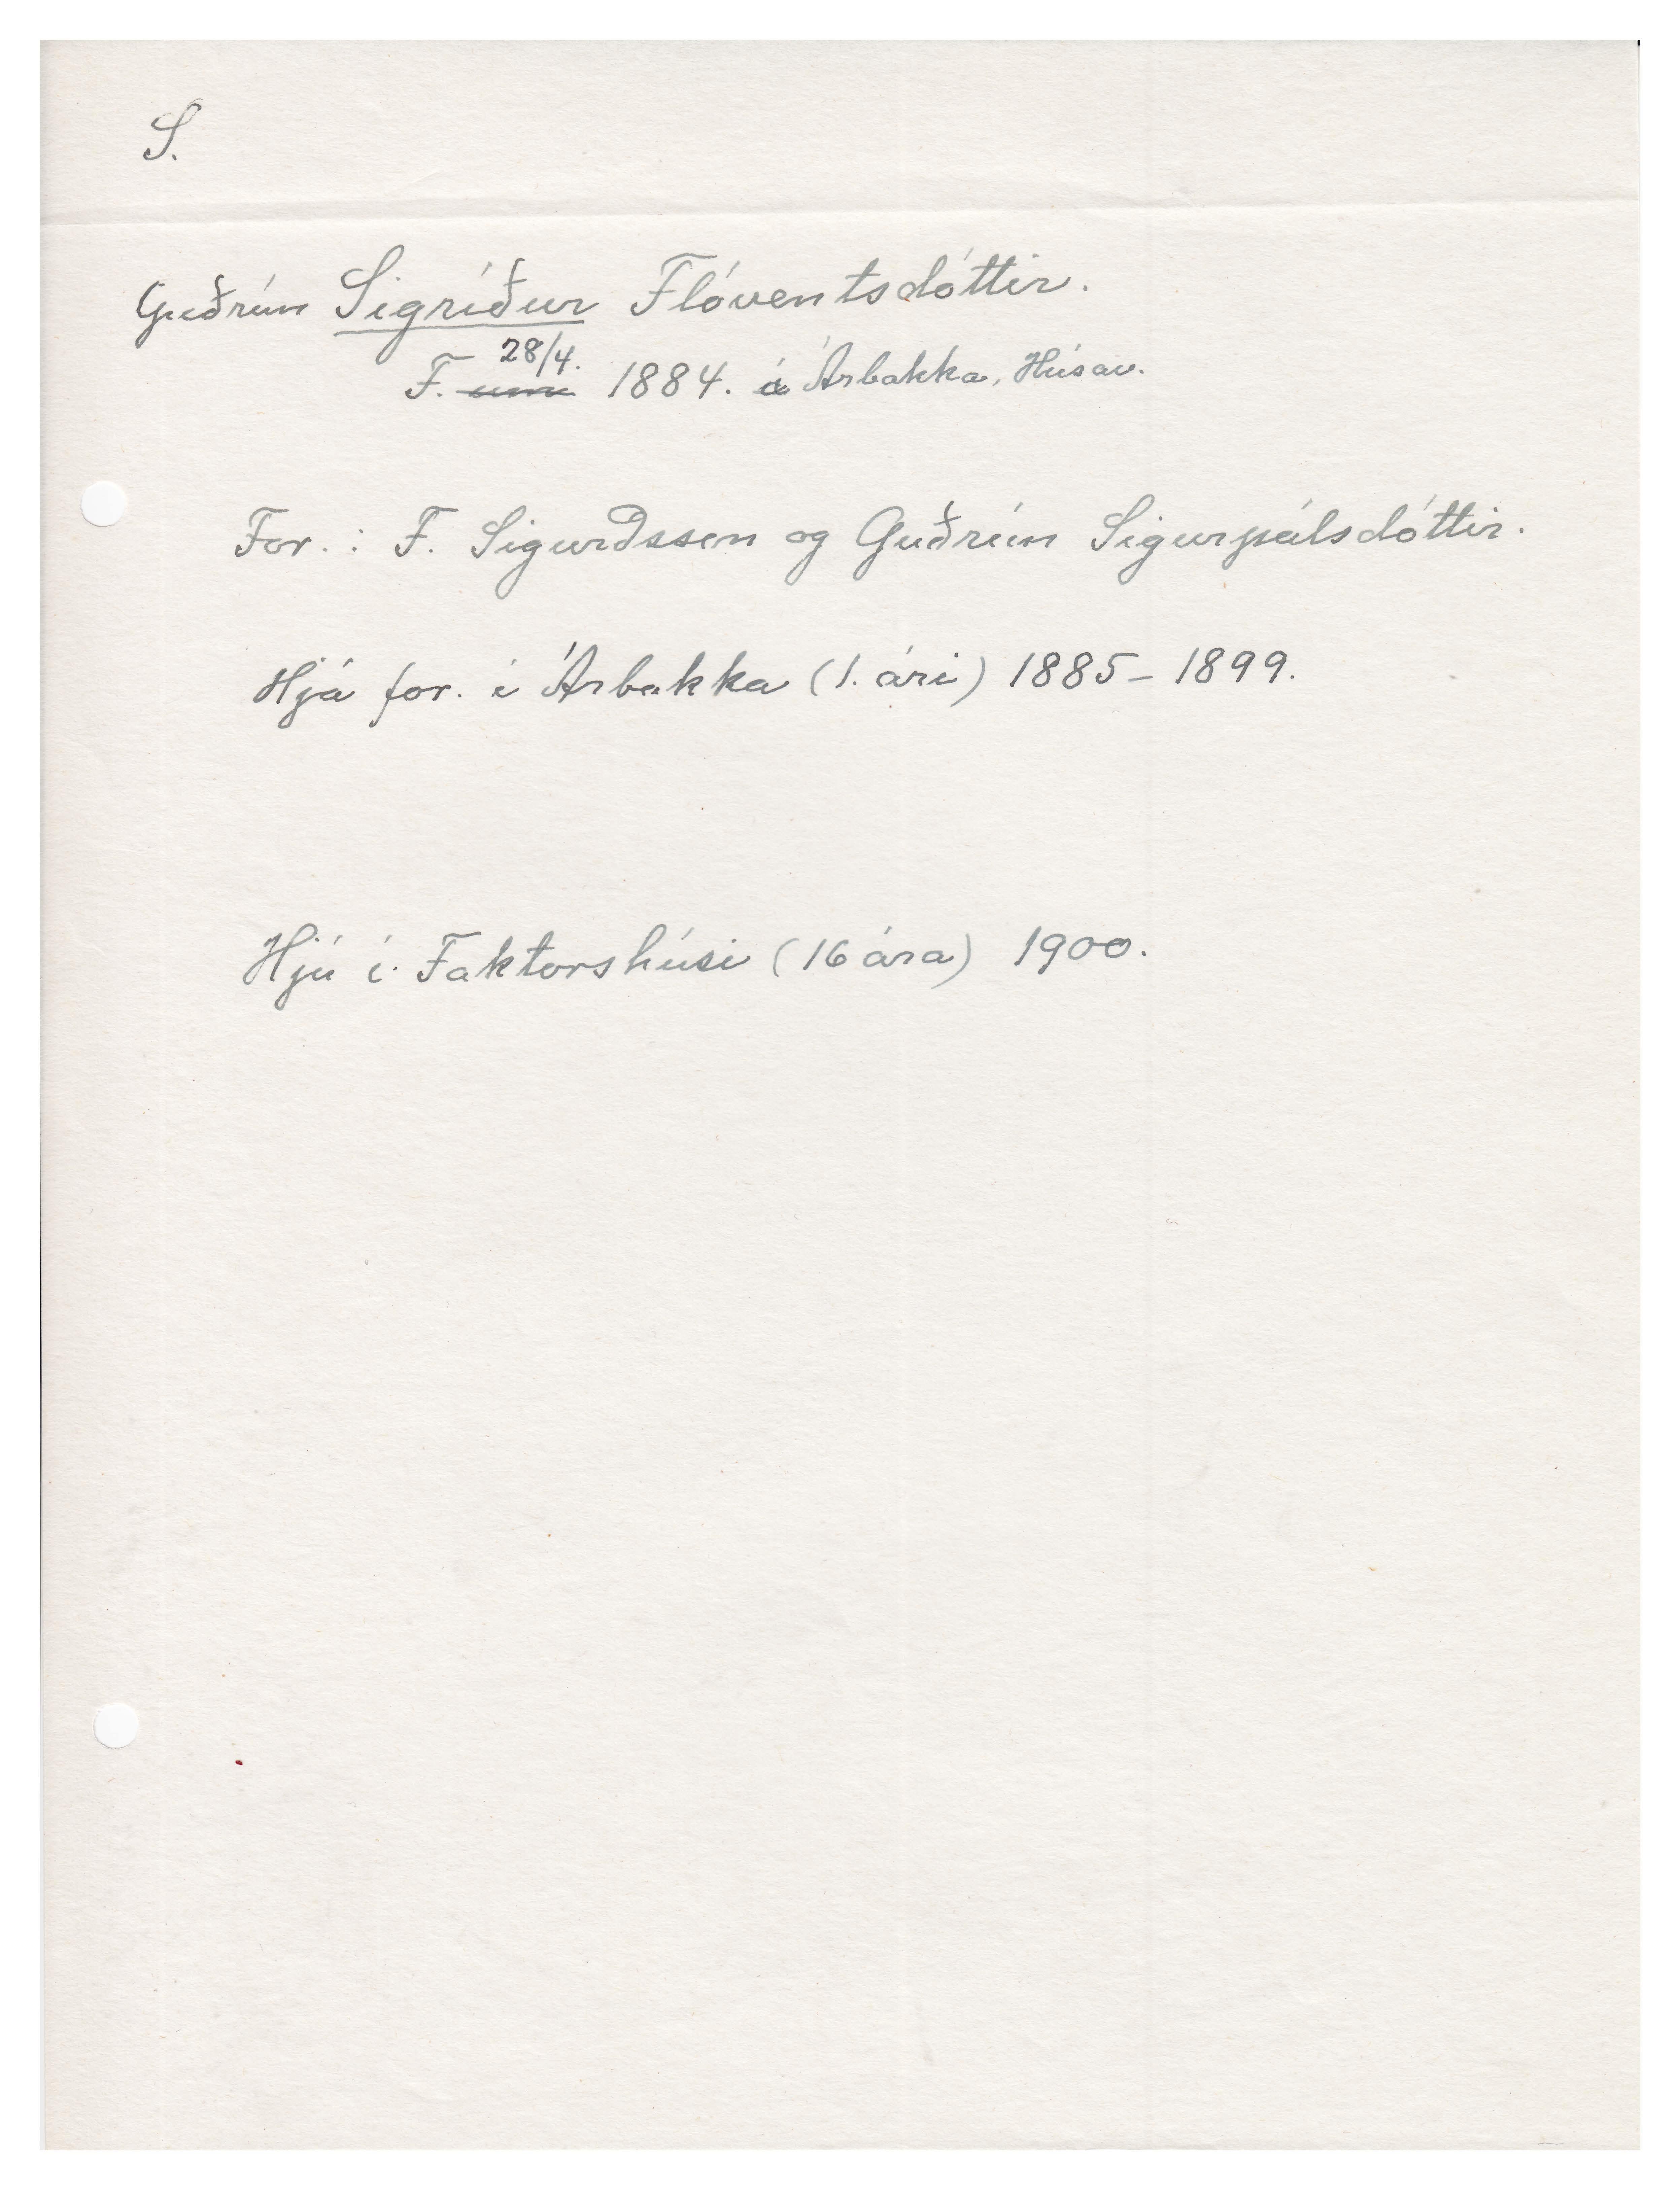 S.
Guðrún Sigríður Flóventsdóttir.
28/4.
F. um 1884. á Árbakka, Húsav.
For.: F. Sigurðsson og Guðrún Sigurpálsdóttir.
Hjá for. í Árbakka (1. ári) 1885-1899.
Hjú í Faktorshúsi (16 ára) 1900.